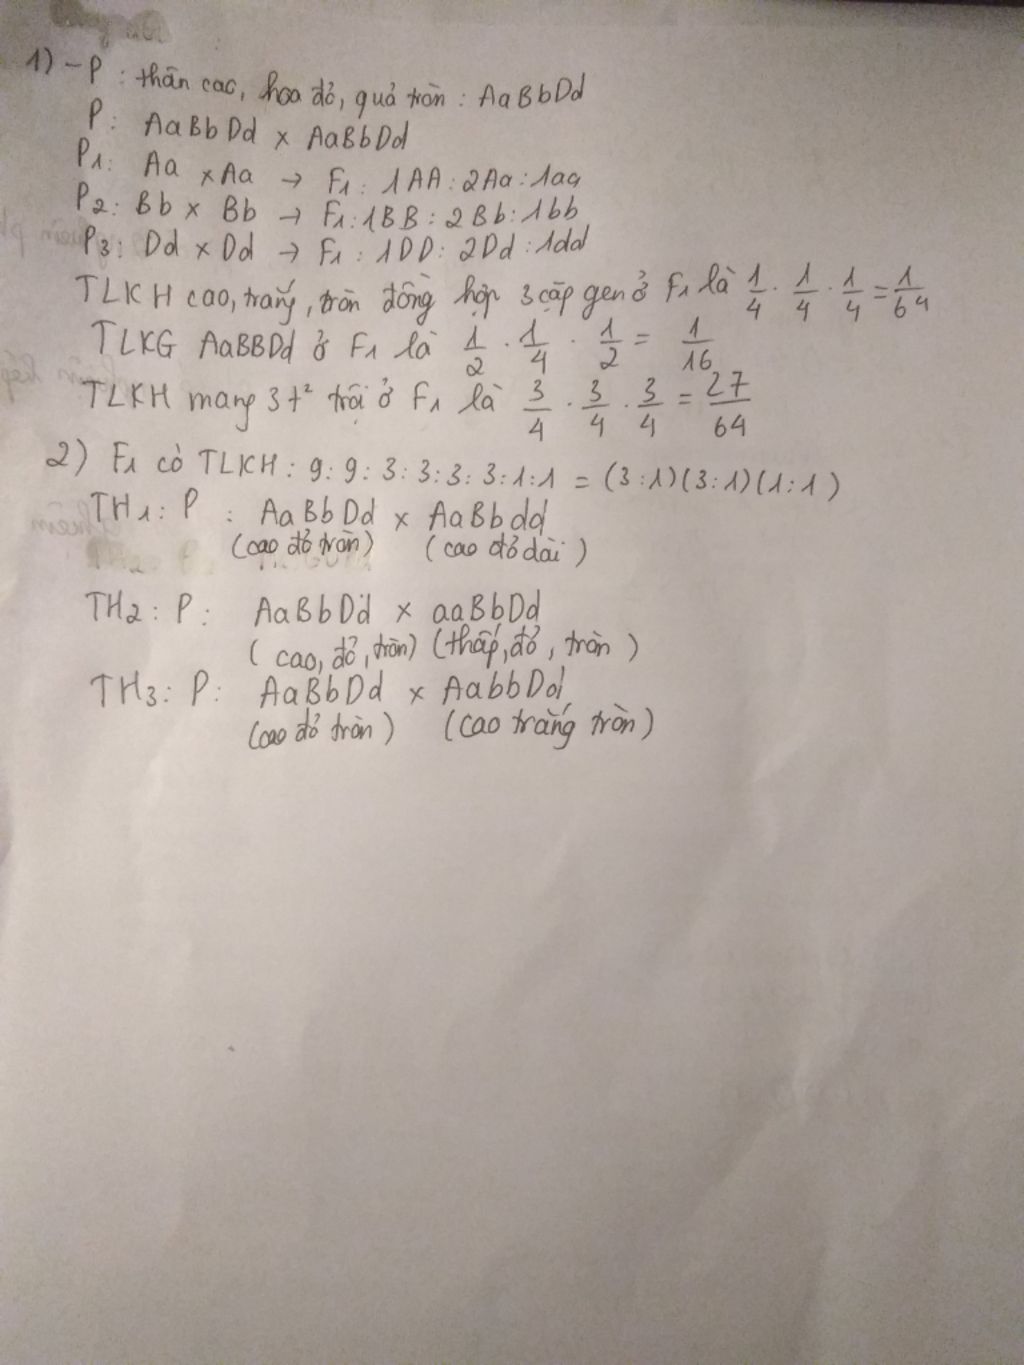 1) - P : thân cao, hoa đỏ, quả tròn : AaBbDd
P: AaBbDd x AaBbDd
P1: Aa x Aa → F1 : 1AA : 2Aa : 1aa
P2: Bb x Bb → F1 : 1BB : 2Bb : 1bb
P3: Dd x Dd → F1 : 1DD : 2Dd : 1dd
TLKH cao, trắng, tròn đồng hợp 3 cặp gen ở F1 là 1/4 . 1/4 . 1/4 = 1/64
TLKG AaBBDd ở F1 là 1/2 . 1/4 . 1/2 = 1/16
TLKH mang 3 t² trội ở F1 là 3/4 . 3/4 . 3/4 = 27/64
2) F1 có TLKH : 9 : 9 : 3 : 3 : 3 : 3 : 1 : 1 = (3 : 1)(3 : 1)(1 : 1)
TH1 : P : AaBbDd x AaBbdd
(cao đỏ tròn) (cao đỏ dài)
TH2 : P : AaBbDd x aaBbDd
(cao, đỏ, tròn) (thấp, đỏ, tròn)
TH3 : P : AaBbDd x AabbDd
(cao đỏ tròn) (cao trắng tròn)